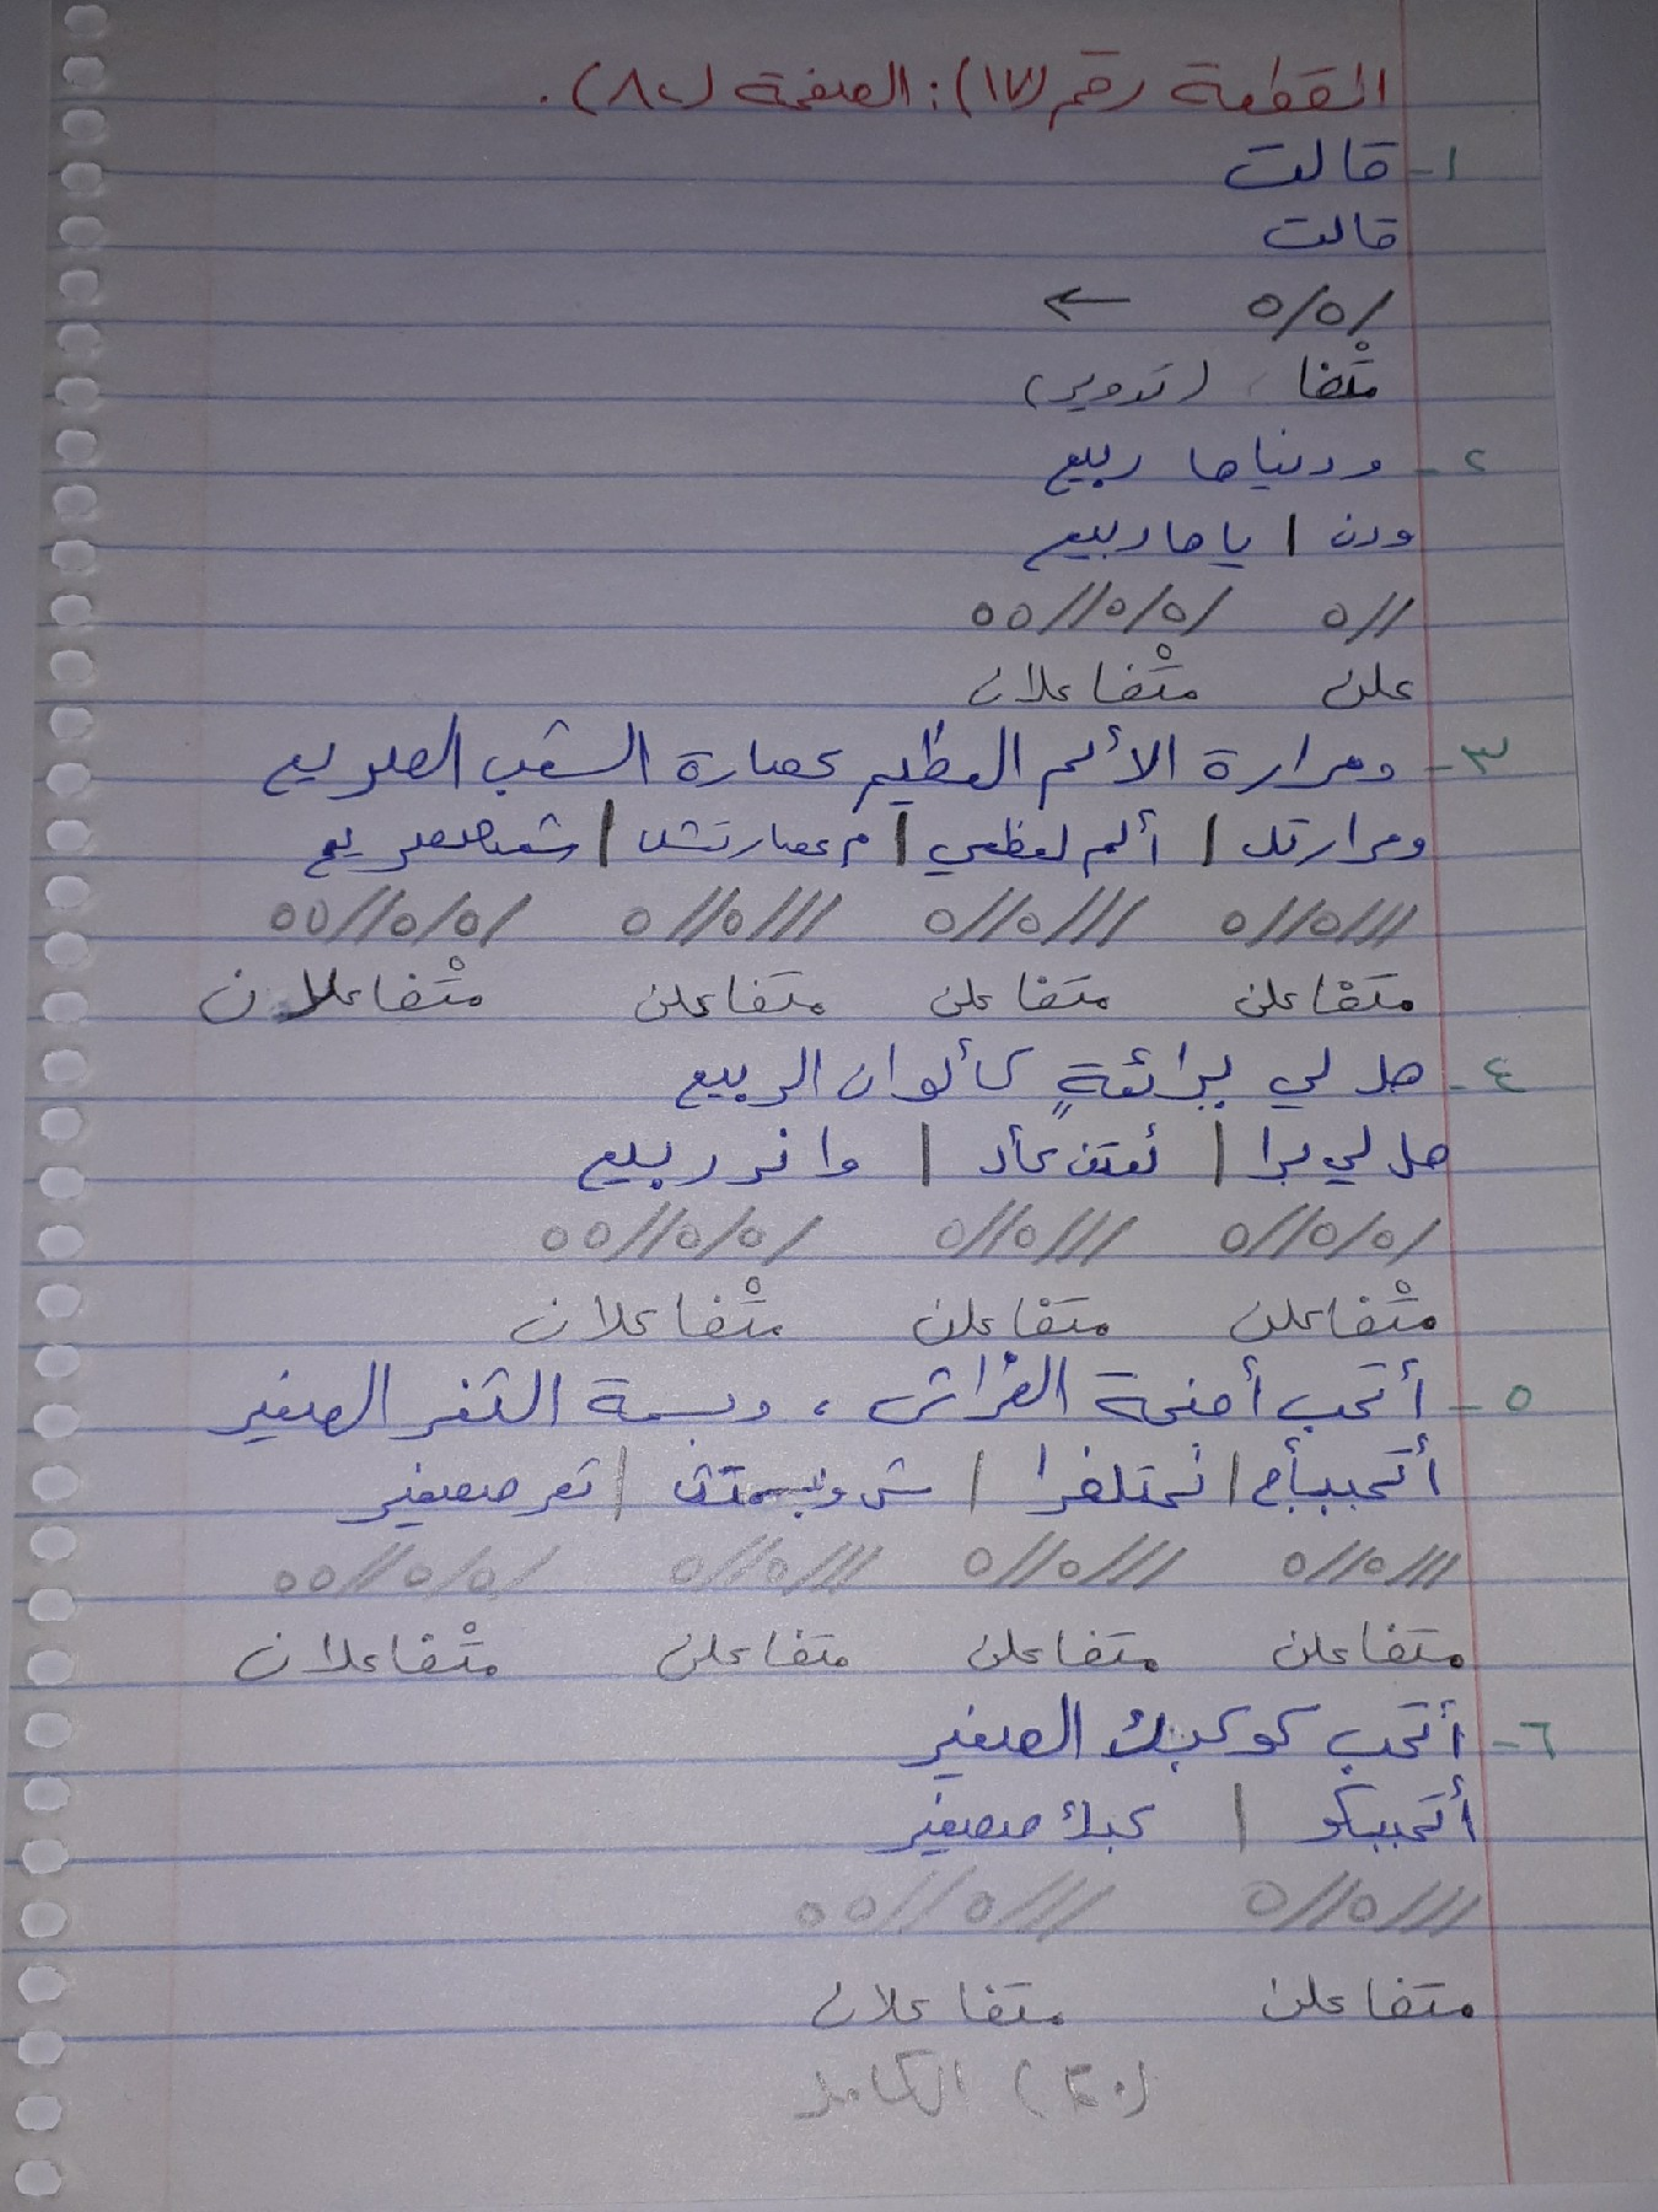 القطعة رقم (١٧): الصفحة (٨٠).
١- قالت
قالت
/٥/٥ ←
متْفا (تدوير)
٢- ودنياها ربيع
ودن | ياها ربيع
//٥ /٥/٥//٥٥
علن متْفاعلان
٣- ومرارة الألم العظيم عصارة الشعب الصريع
ومرارتل | ألم لعظي | م عصارتش | شعبصصريع
///٥//٥ ///٥//٥ ///٥//٥ /٥/٥//٥٥
متفاعلن متفاعلن متفاعلن متْفاعلان
٤- هل لي برائعةٍ كألوان الربيع
هل لي برا | ئعتن كأل | وانر ربيع
/٥/٥//٥ ///٥//٥ /٥/٥//٥٥
متْفاعلن متفاعلن متْفاعلان
٥- أتحب أجنحة الفراش، وبسمة الثغر الصغير
أتحببأج | نحتلفرا | ش وبسمتث | ثغر صصغير
///٥//٥ ///٥//٥ ///٥//٥ /٥/٥//٥٥
متفاعلن متفاعلن متفاعلن متْفاعلان
٦- أتحب كوكبك الصغير
أتحببكو | كبك صصغير
///٥//٥ ///٥//٥٥
متفاعلن متفاعلان
(٣٠) الكامل